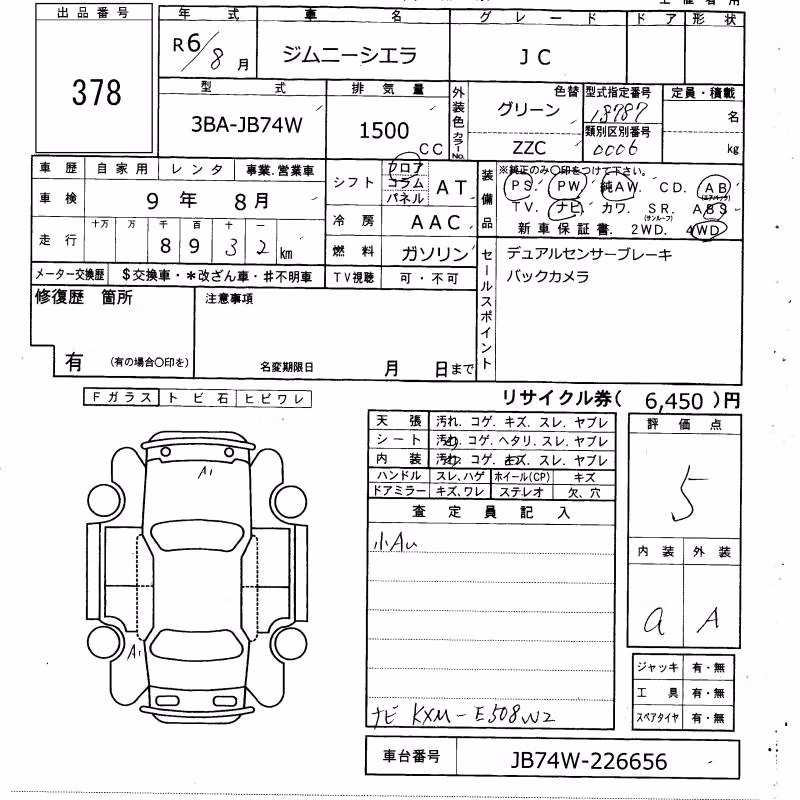 出品番号
378
年 式 車 名 グ レ ー ド ド ア 形 状
R6/8月 ジムニーシエラ JC
型 式 排 気 量 外装色 カラーNo. 色替 型式指定番号 定員・積載
3BA-JB74W 1500 CC グリーン 18787 名
ZZC 類別区別番号 0006 kg
車 歴 自 家 用 レ ン タ 事業.営業車
車 検 9 年 8 月
走 行 十万 万 千 百 十 一
8 9 3 2 km
シフト フロア コラム パネル AT
冷 房 AAC
燃 料 ガソリン
装備品 ※純正のみ〇印をつけて下さい。
PS. PW. 純AW. CD. AB (エアバック)
TV. ナビ. カワ. SR. (サンルーフ) ABS
新 車 保 証 書. 2WD. 4WD
メーター交換歴 $交換車・＊改ざん車・＃不明車 TV視聴 可・不可
セールスポイント デュアルセンサーブレーキ
バックカメラ
修復歴 箇所 注意事項
有 (有の場合〇印を) 名変期限日 月 日まで
Fガラス ト ビ 石 ヒビワレ
リサイクル券( 6,450 )円
天 張 汚れ. コゲ. キズ. スレ. ヤブレ
シート 汚れ. コゲ. ヘタリ. スレ. ヤブレ
内 装 汚れ. コゲ. キズ. スレ. ヤブレ
ハンドル スレ、ハゲ ホイール(CP) キズ
ドアミラー キズ、ワレ ステレオ 欠、穴
評 価 点
5
内 装 外 装
a A
査 定 員 記 入
小AU
ナビ KXM-E508W2
A1
A1
ジャッキ 有・無
工 具 有・無
スペアタイヤ 有・無
車台番号 JB74W-226656